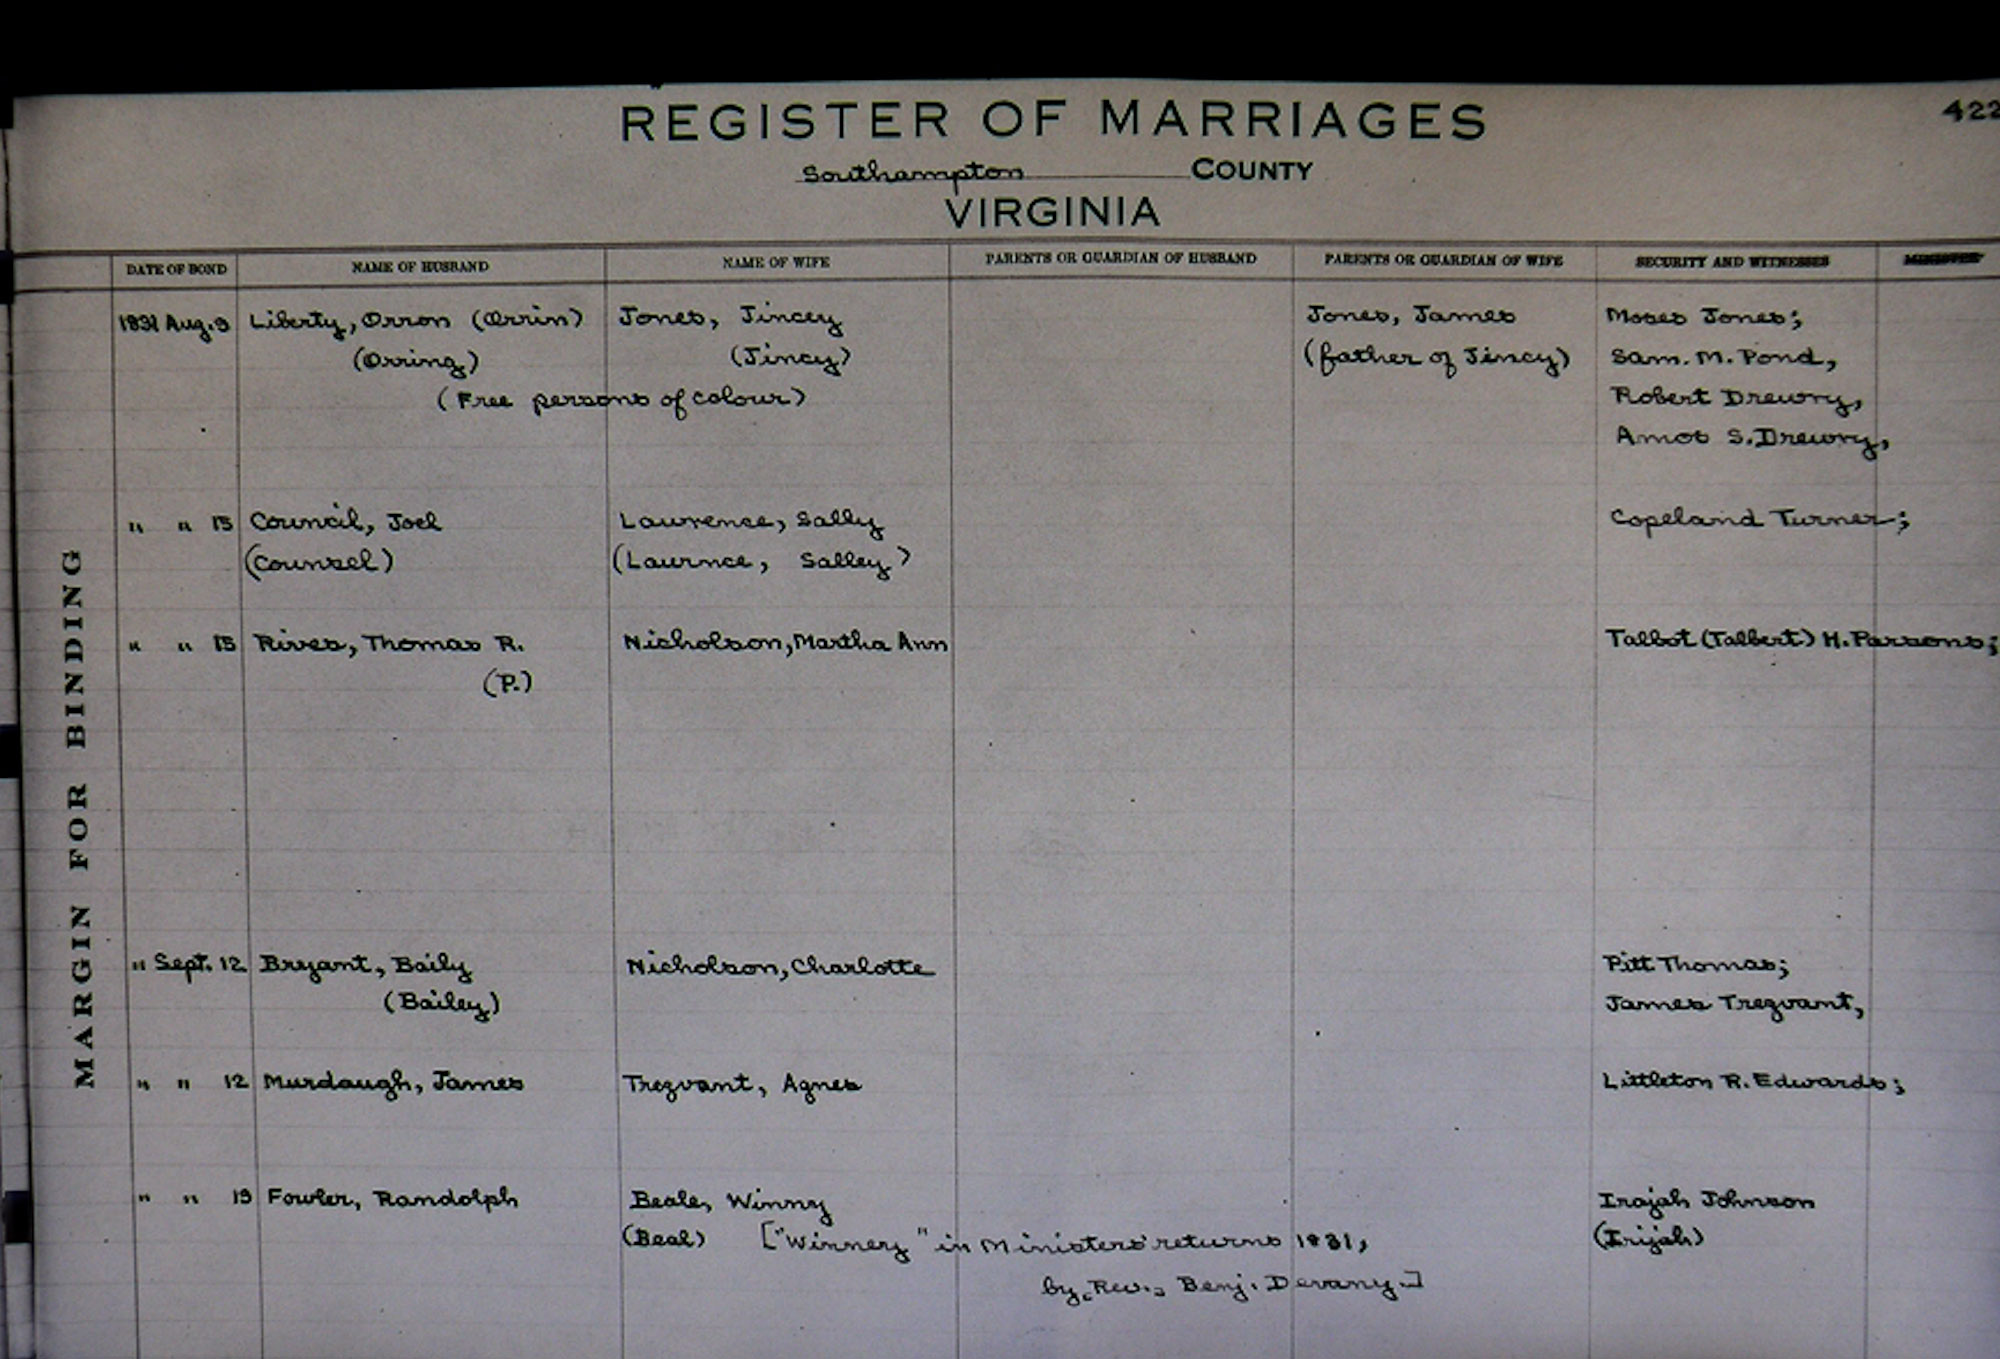 REGISTER OF MARRIAGES 422
Southampton COUNTY
VIRGINIA
DATE OF BOND NAME OF HUSBAND NAME OF WIFE PARENTS OR GUARDIAN OF HUSBAND PARENTS OR GUARDIAN OF WIFE SECURITY AND WITNESSES MINISTER
1831 Aug. 9 Liberty, Orron (Orrin) Jones, Jincey Jones, James Moses Jones;
(Orring) (Jincy) (father of Jincy) Sam. M. Pond,
(Free persons of colour) Robert Drewry,
Amos S. Drewry,
" " 15 Council, Joel Lawrence, Sally Copeland Turner;
(Counsel) (Laurnce, Salley)
" " 15 Rives, Thomas R. Nicholson, Martha Ann Talbot (Talbert) H. Parsons;
(P.)
" Sept. 12 Bryant, Baily Nicholson, Charlotte Pitt Thomas;
(Bailey) James Trezvant,
" " 12 Murdaugh, James Trezvant, Agnes Littleton R. Edwards;
" " 19 Fowler, Randolph Beale, Winny Irajah Johnson
(Beal) ["Winnery" in Ministers' returns 1831, (Irijah)
by, Rev., Benj. Devany.]
MARGIN FOR BINDING